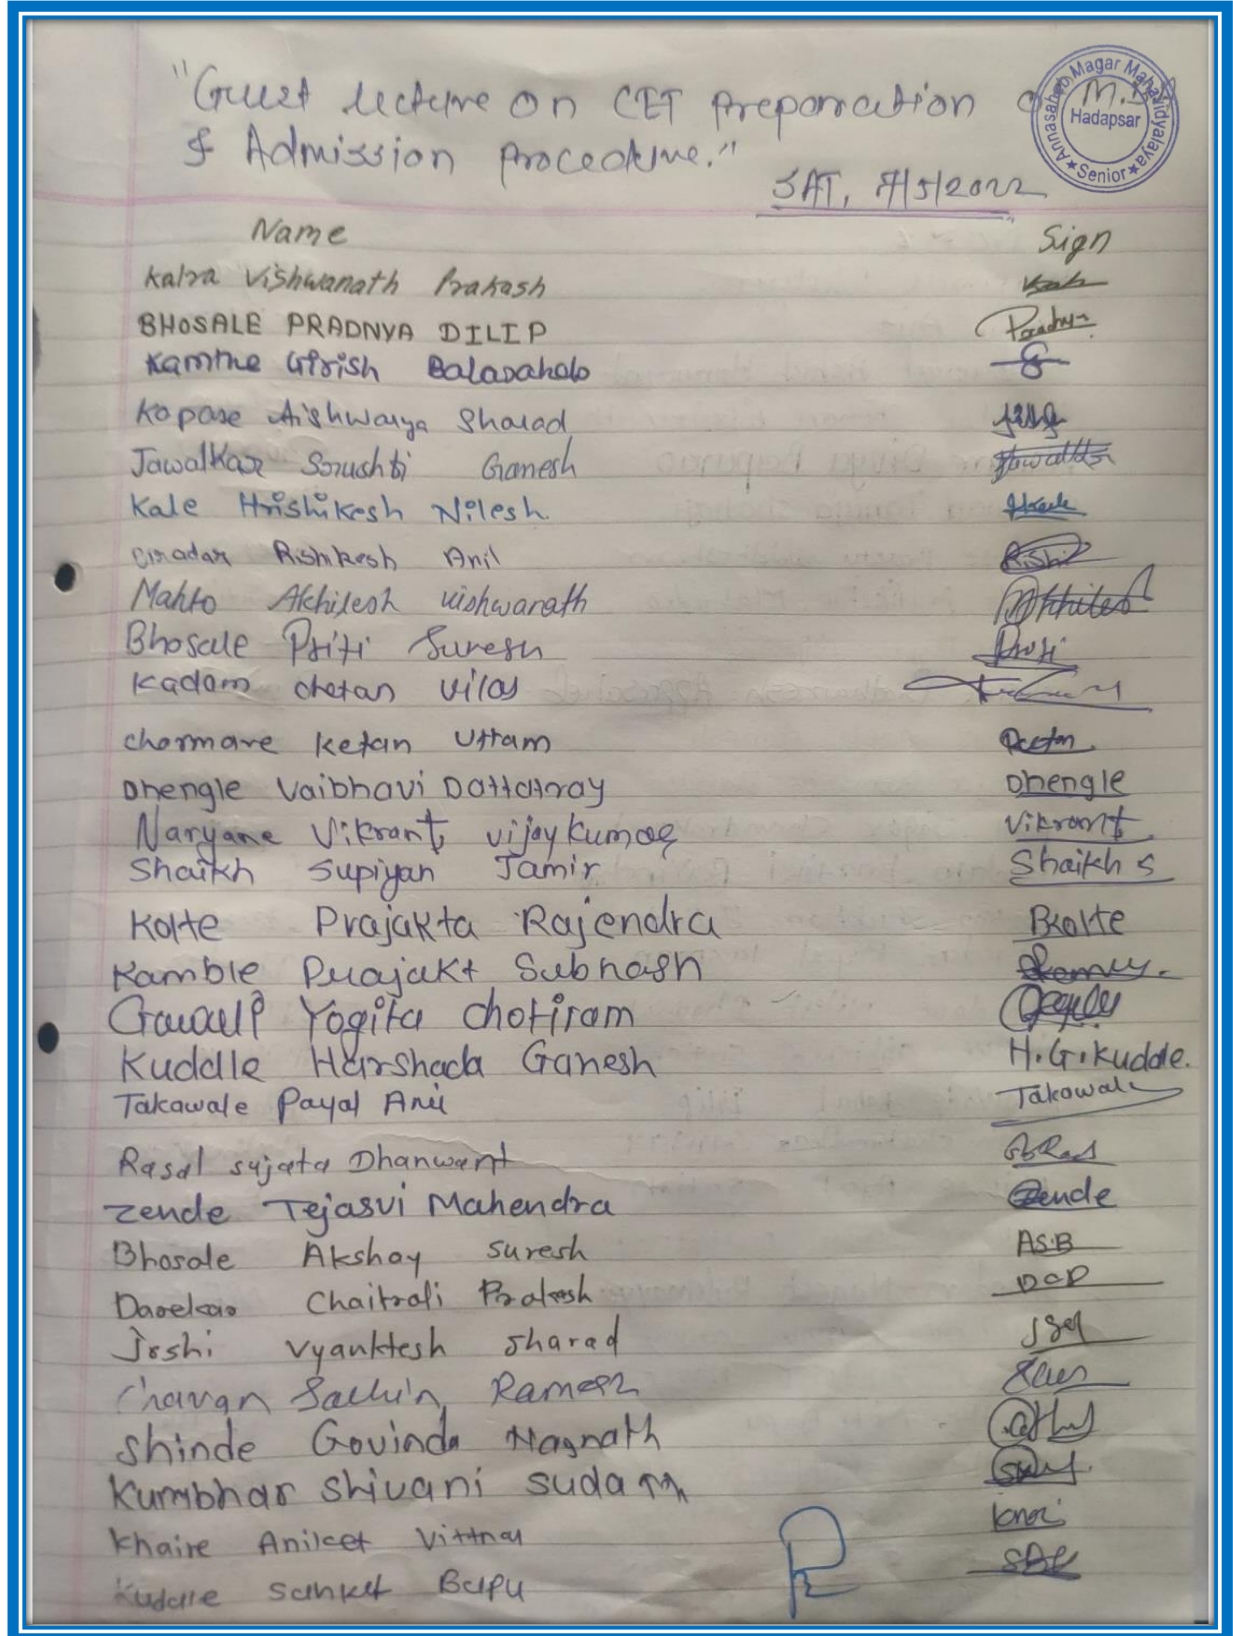 "Guest lecture on CET Preparation of M.Sc
& Admission Procedure."
Annasaheb Magar Mahavidyalaya
Hadapsar
★ Senior ★
SAT, 7/5/2022
Name Sign
Kalra Vishwanath Prakash
BHOSALE PRADNYA DILIP
Kamthe Girish Balasaheb
Kopase Aishwarya Sharad
Jawalkar Srushti Ganesh
Kale Hrishikesh Nilesh
Rishikesh Anil Rishi
Mahto Akhilesh vishwanath Akhilesh
Bhosale Priti Suresh Priti
Kadam chetan vilas
chormare ketan Uttam Ketan
Dhengle Vaibhavi Dattatray Dhengle
Naryane Vikrant vijaykumar Vikrant
Shaikh Supiyan Jamir Shaikh S
Kolte Prajakta Rajendra PKolte
Kamble Prajakt Subhash
Gawali Yogita Chotiram
Kuddle Harshada Ganesh H.G.Kuddle.
Takawale Payal Anil Takawale
Rasal sujata Dhanwant
Zende Tejasvi Mahendra Zende
Bhosale Akshay Suresh ASB
Darekar Chaitrali Prakash DCP
Joshi Vyanktesh Sharad
Chavan Sachin Ramesh
Shinde Govinda Nagnath
Kumbhar Shivani sudam
Khaire Aniket Vitthal
Kudale Sanket Bapu SBK